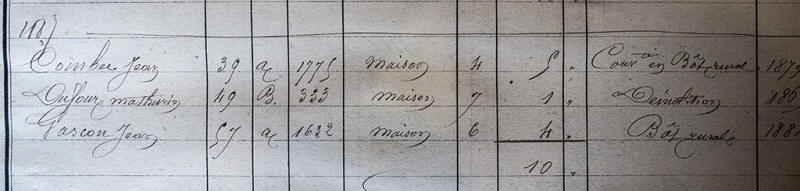 1883
Combes Jean 39 a 1775 maison 4 5 " Conv. en Bât. rural 1879
Dufour mathurin 49 B. 333 maison 7 1 " Démolition 186
Gascon Jean 57 a 1632 maison 6 4 " Bât. rurale 188
10 "